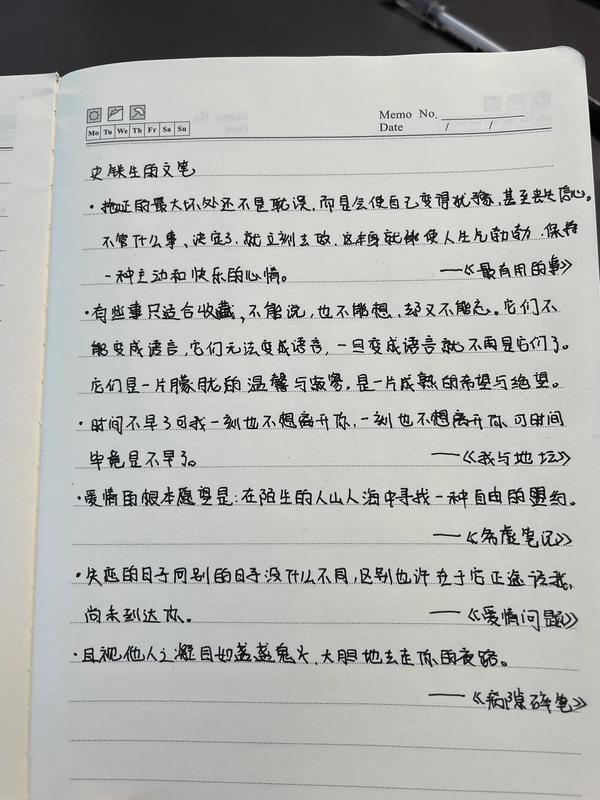 Memo No.
Mo Tu We Th Fr Sa Su
Date / /
史铁生的文笔
·拖延的最大坏处还不是耽误,而是会使自己变得犹豫,甚至丧失信心。
不管什么事、决定了,就立刻去做,这本身就能使人生气勃勃,保持
一种主动和快乐的心情。 ——《最有用的事》
·有些事只适合收藏,不能说,也不能想,却又不能忘。它们不
能变成语言,它们无法变成语言,一旦变成语言就不再是它们了。
它们是一片朦胧的温馨与寂寥,是一片成熟的希望与绝望。
·时间不早了可我一刻也不想离开你,一刻也不想离开你可时间
毕竟是不早了。 ——《我与地坛》
·爱情的根本愿望是:在陌生的人山人海中寻找一种自由的盟约。
——《务虚笔记》
·失恋的日子同别的日子没什么不同,区别也许在于它正途该我,
尚未到达你。 ——《爱情问题》
·且视他人之凝目如盏盏鬼火,大胆地去走你的夜路。
——《病隙碎笔》